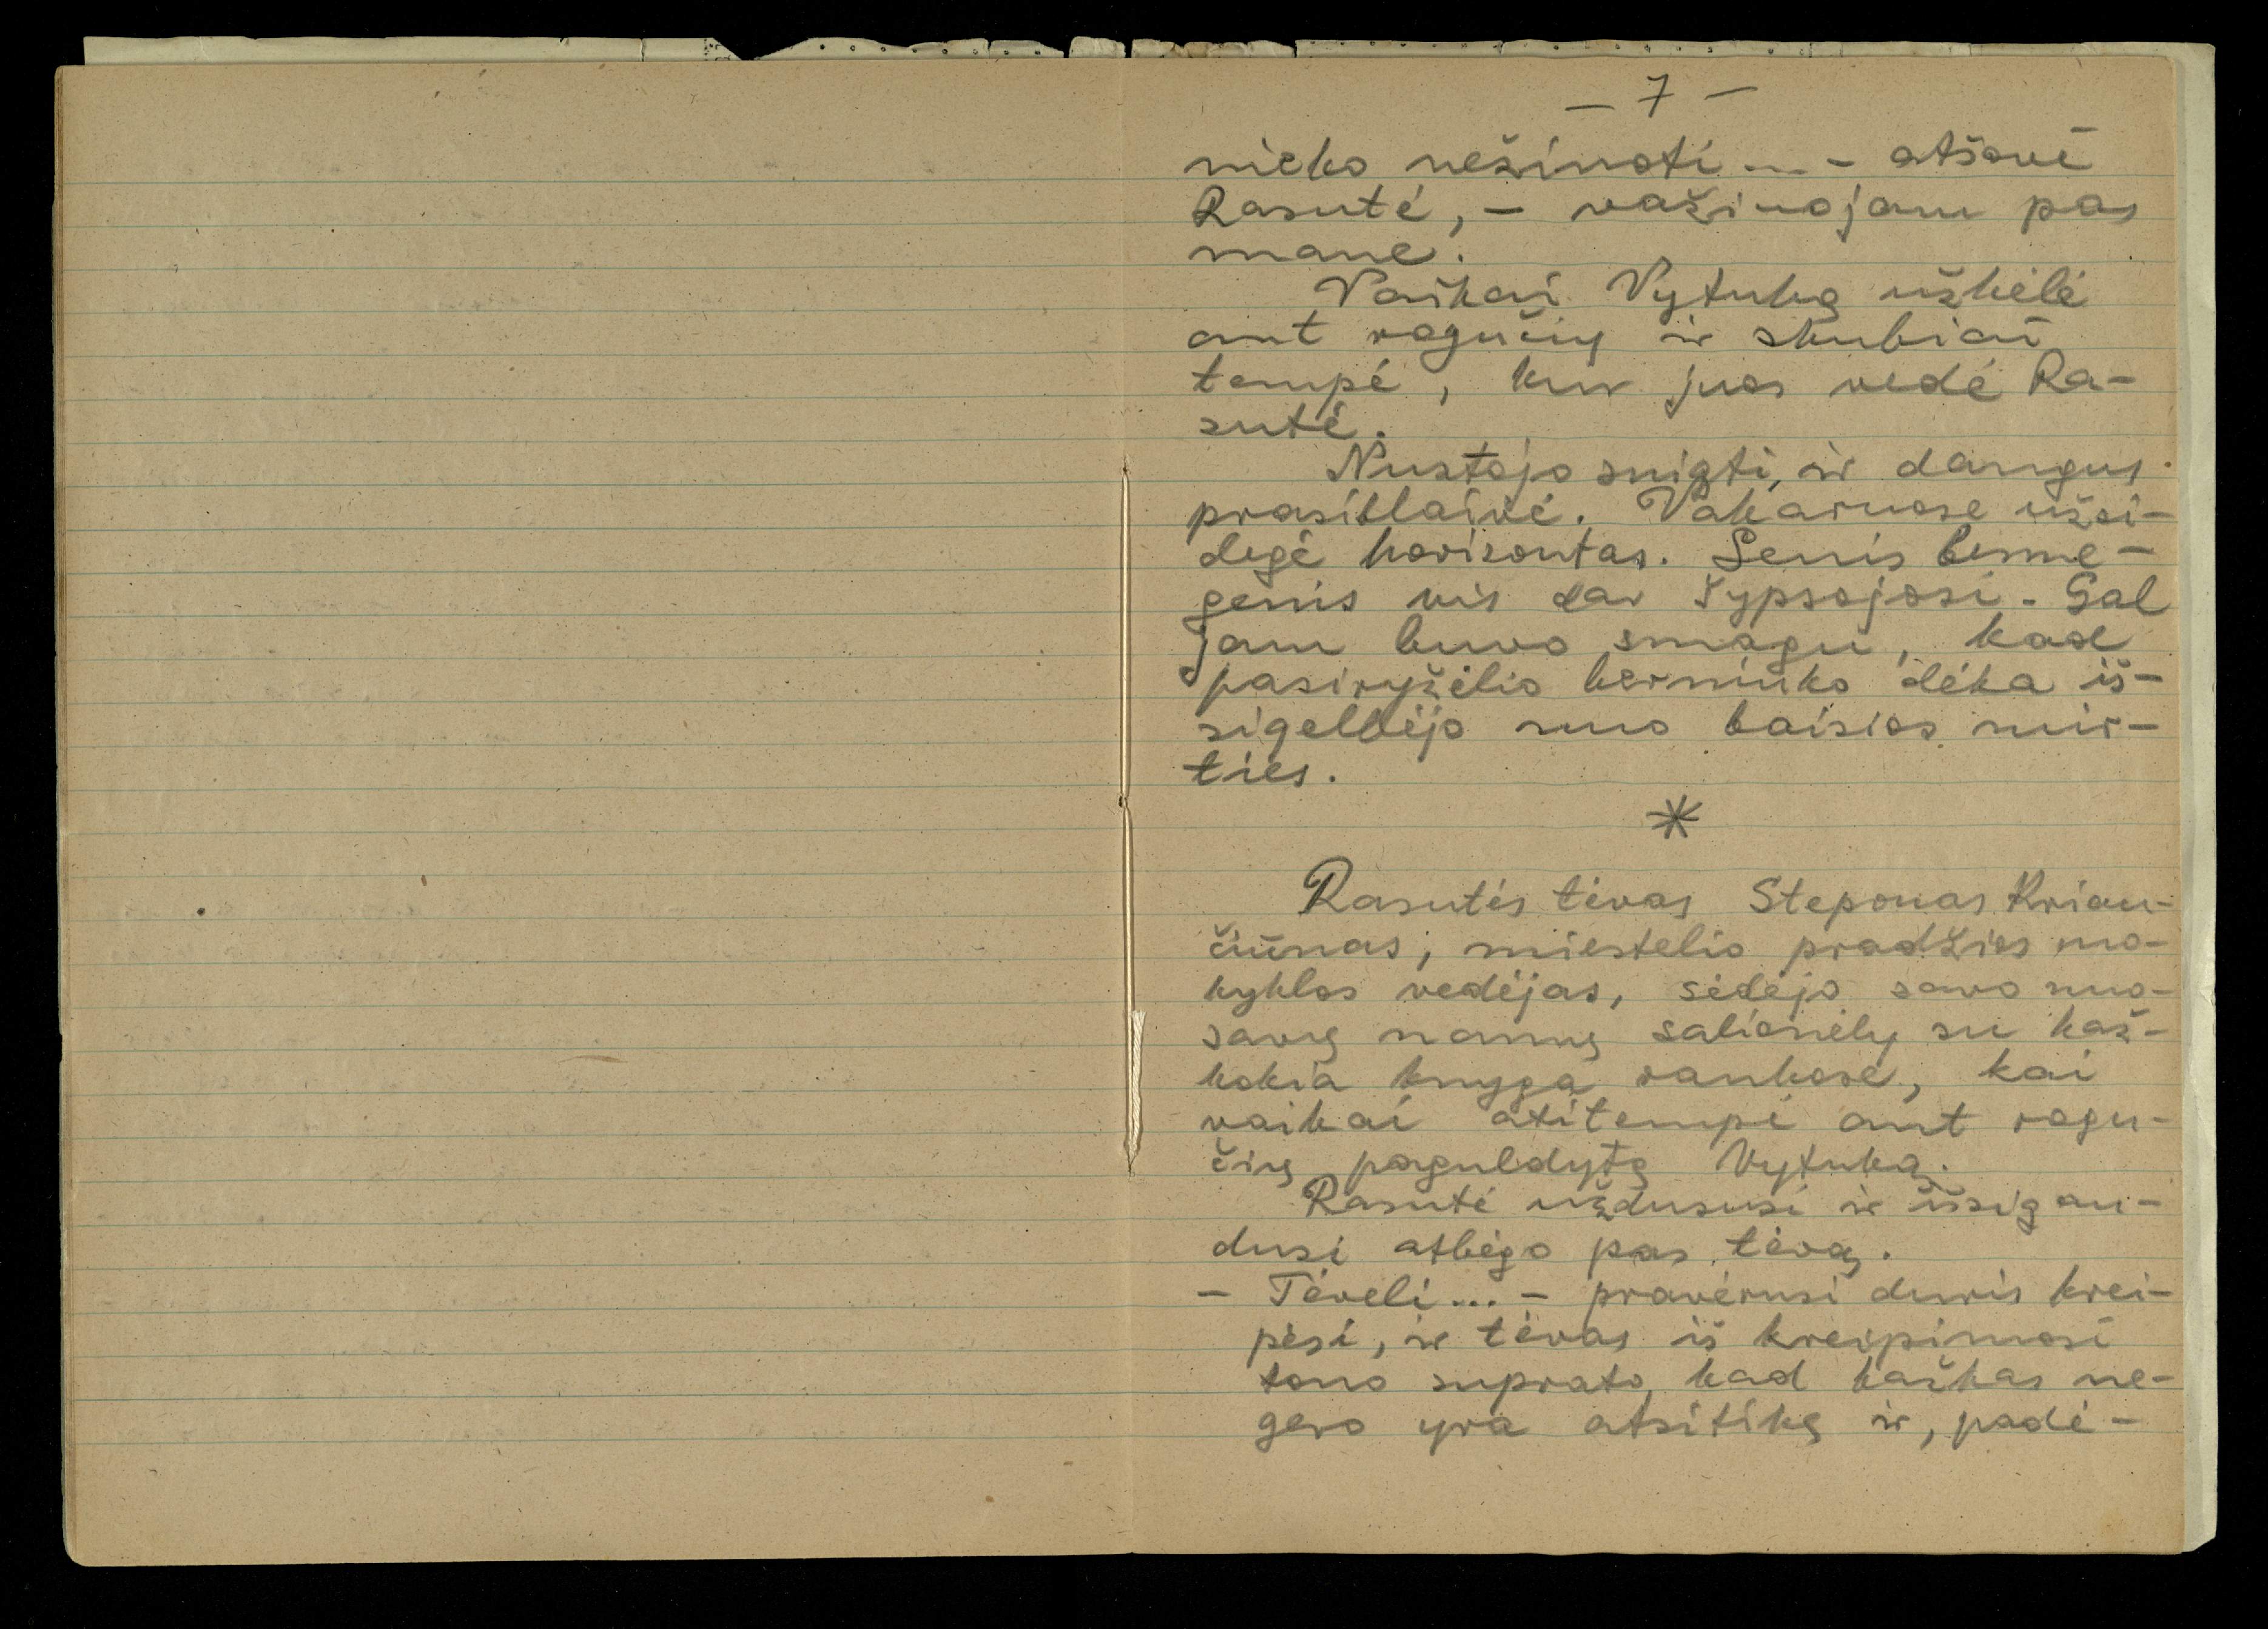 – 7 –
nieko nežinoti... – atšovė
Rasutė, – važinojam pas
mane.
Vaikai Vytuką užkėlė
ant rogučių ir skubiai
tempė, kur juos vedė Ra-
sutė.
Nustojo snigti, ir dangus
prasiblaivė. Vakaruose užsi-
degė horizontas. Senis besme-
genis vis dar šypsojosi. Gal
jam buvo smagu, kad
pasiryžėlio berniuko dėka iš-
sigelbėjo nuo baisios mir-
ties.
*
Rasutės tėvas Steponas Kriau-
čiūnas, miestelio pradžios mo-
kyklos vedėjas, sėdėjo savo nuo-
savų namų salionėly su kaž-
kokia knyga rankose, kai
vaikai atitempė ant rogu-
čių paguldytą Vytuką.
Rasutė uždususi ir išsigan-
dusi atbėgo pas tėvą.
– Tėveli... – pravėrusi duris krei-
pėsi, ir tėvas iš kreipimosi
tono suprato, kad kažkas ne-
gero yra atsitikę ir, padė-